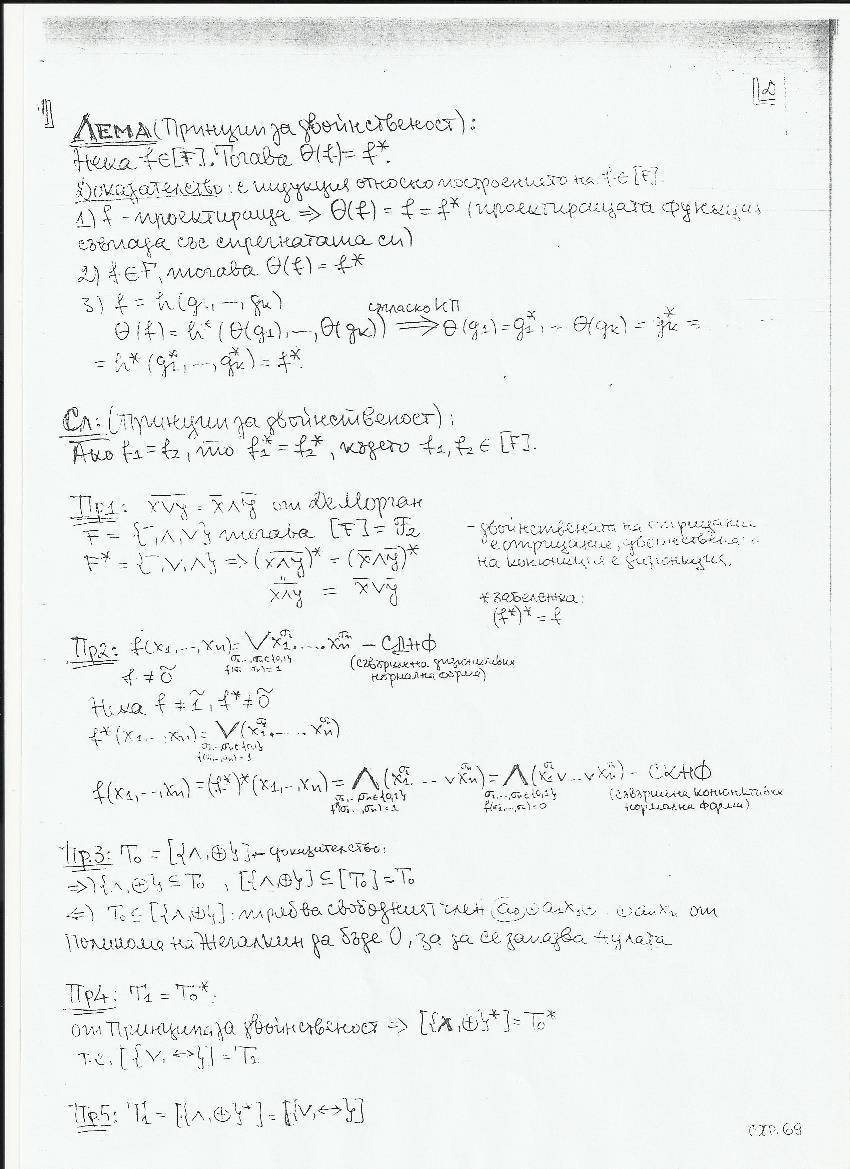 12
1) ЛЕМА (Принцип за двойнственост):
Нека f∈[F]. Тогава Θ(f)=f*.
Доказателство: с индукция относно построението на f∈[F].
1) f - проектираща ⇒ Θ(f) = f = f* (проектиращата функция
съвпада със спрегнатата си)
2) f∈F, тогава Θ(f) = f*
3) f = h(g1, -, gk)
съгласно ИП
Θ(f) = h*(Θ(g1), -, Θ(gk)) ⟹ Θ(g1) = g1*, - Θ(gk) = gk* =
= h*(g1*, -, gk*) = f*.
Сл: (Принцип за двойнственост):
Ако f1 = f2, то f1* = f2*, където f1, f2 ∈ [F].
Пр1: x̅∨̅y̅ = x̅∧y̅ от ДеМорган
F = {¯, ∧, ∨} тогава [F] = F2
F* = {¯, ∨, ∧} => (x̅∧̅y̅)* = (x̅∧y̅)*
x̅∧̅y̅ = x̅∨y̅
- двойнствената на отрицание
е отрицание, двойнствена
на конюнкция е дизюнкция.
* забележка:
(f*)* = f
Пр2: f(x1, -, xn) = ∨ x1^σ1. ... . xn^σn – СДНФ
σ1,..,σn∈{0,1}
f(σ1..σn) = 1
(съвършена дизюнктивна
нормална форма)
f ≠ 0̃
Нека f ≠ 1̃, f* ≠ 0̃
f*(x1, -, xn) = ∨(x1^σ1. - ... xn^σn)
σ1,..,σn∈{0,1}
f*(σ1,..,σn)=1
f(x1, -, xn) = (f*)*(x1, -, xn) = ∧(x1^σ1 ... ∨xn^σn) = ∧(x1^σ1 ∨...∨xn^σn) – СКНФ
σ1,..,σn∈{0,1}
f*(σ1..,σn)=1
σ1,..,σn∈{0,1}
f(σ1,..,σn)=0
(съвършена конюнктивна
нормална форма)
Пр.3: T0 = [{∧,⊕}] - доказателство:
⇒) {∧,⊕} ⊆ T0 , [{∧,⊕}] ⊆ [T0] = T0
⇐) T0 ⊆ [{∧,⊕}]: трябва свободният член a0 ⊕ a1x1 .. ⊕ anxn от
Полинома на Жегалкин да бъде 0, за да се запазва нулата
Пр4: T1 = T0*:
от Принципа за двойнственост ⇒ [{∧,⊕}*] = T0*
т.е. [{∨,↔}] = T1
Пр5: T1 = [{∧,⊕}*] = [{∨,↔}]
стр. 69